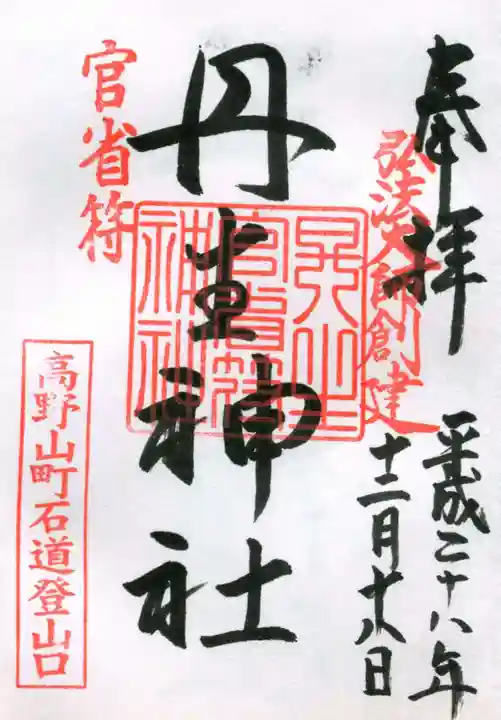 奉拝
弘法大師創建
平成二十八年
十二月十八日
丹生神社
丹生官省符神社
官省符
高野山町石道登山口